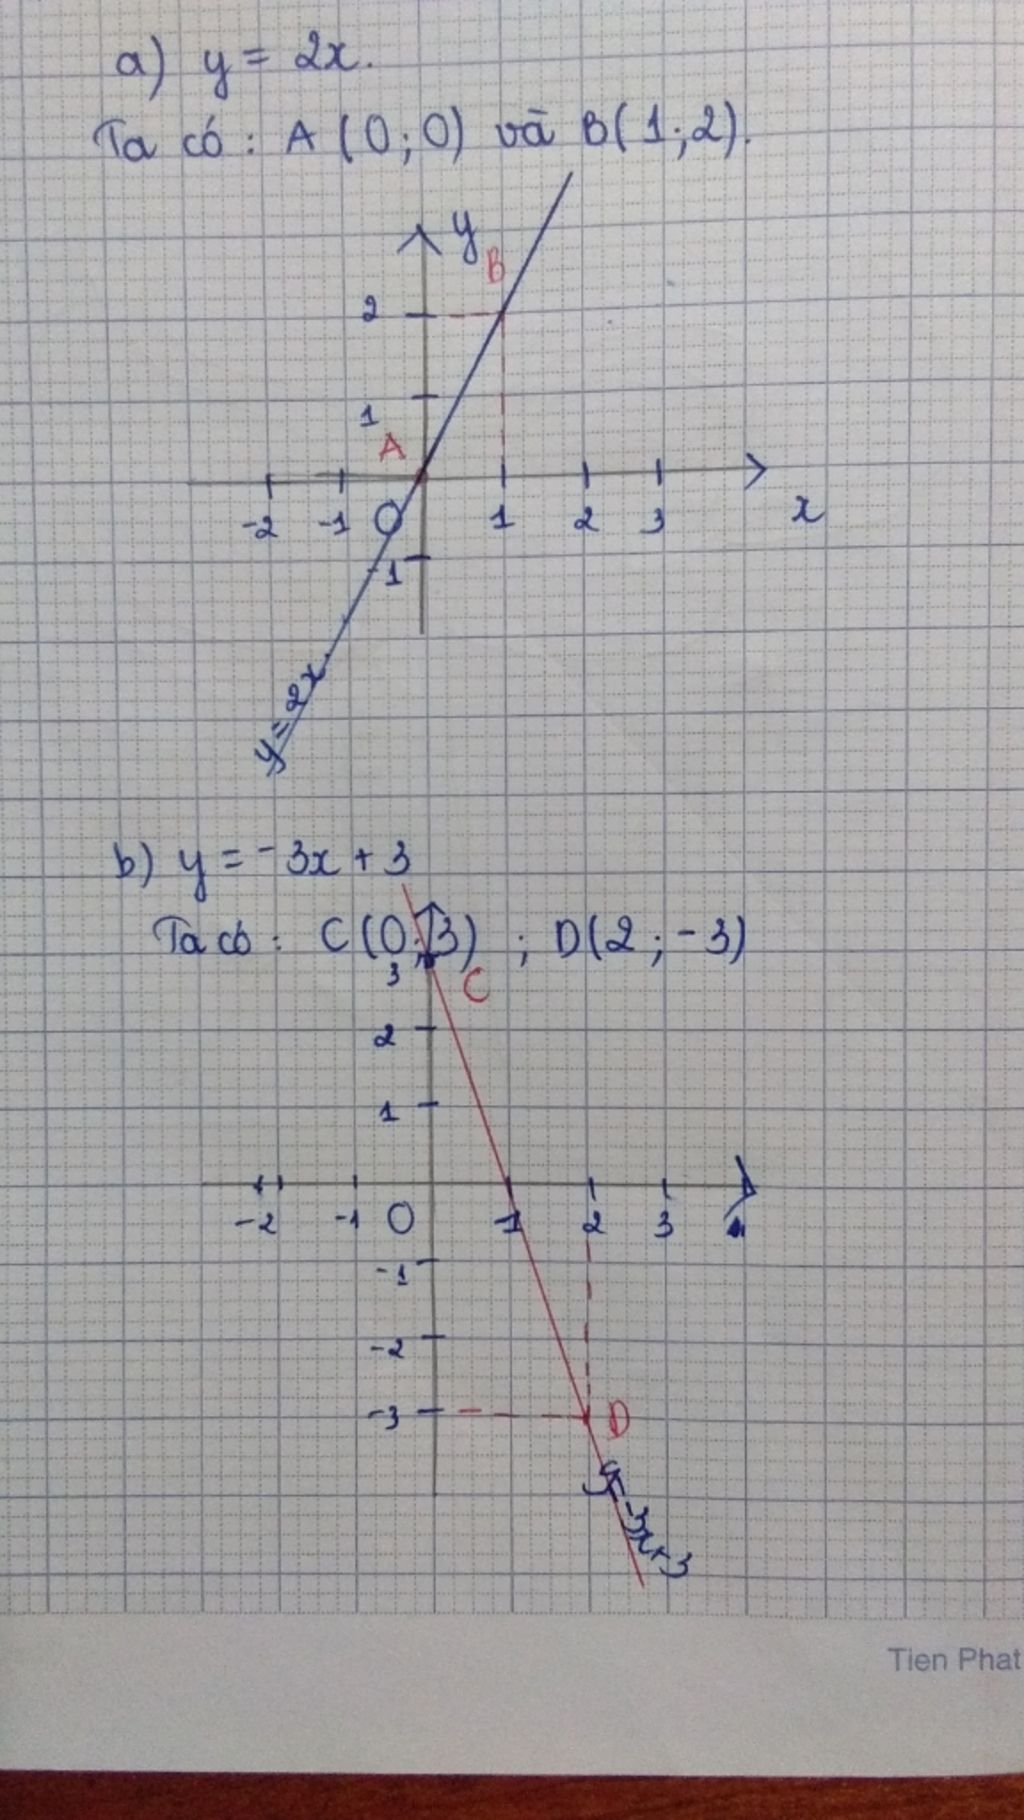 a) y = 2x.
Ta có : A (0 ; 0) và B(1 ; 2).
y
B
2
1
A
-2 -1 O 1 2 3 x
-1
y = 2x
b) y = -3x + 3
Ta có : C (0 ; 3) ; D(2 ; -3)
3 C
2
1
-2 -1 O 1 2 3
-1
-2
-3 D
y=-3x+3
Tien Phat